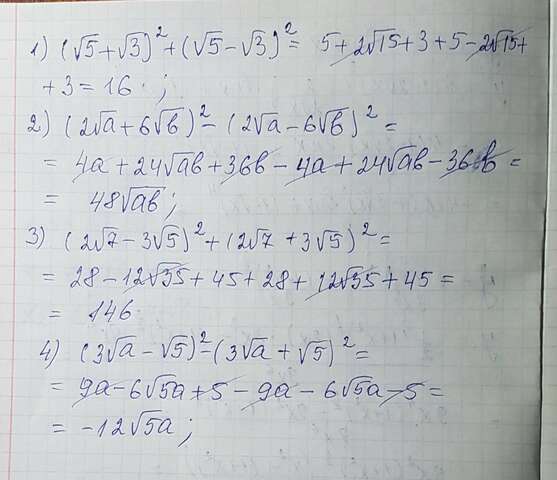 1) (√5+√3)²+(√5-√3)²= 5+2√15+3+5-2√15+
+3=16 ;
2) (2√a+6√b)²-(2√a-6√b)²=
= 4a+24√ab+36b-4a+24√ab-36b=
= 48√ab;
3) (2√7-3√5)²+(2√7+3√5)²=
= 28-12√35+45+28+12√35+45=
= 146
4) (3√a-√5)²-(3√a+√5)²=
= 9a-6√5a+5-9a-6√5a-5=
= -12√5a;